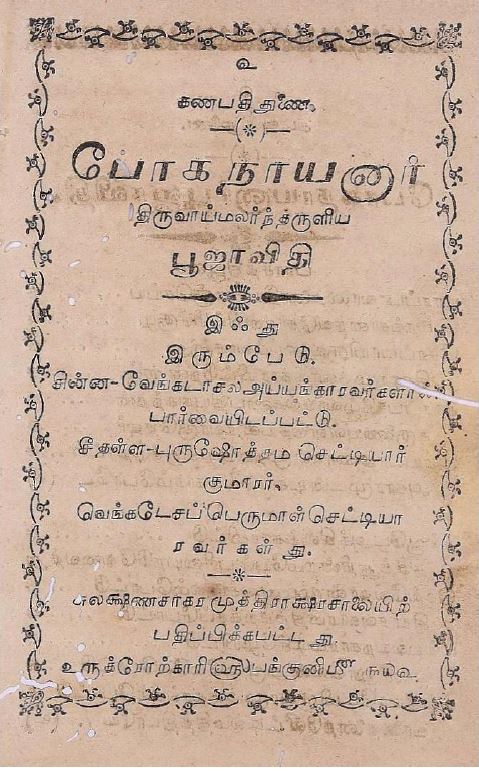 உ
கணபதி துணை.
போகநாயனார்
திருவாய்மலர்ந்தருளிய
பூஜாவிதி
இஃது
இரும்பேடு.
சின்ன-வேங்கடாசல அய்யங்காரவர்களால்
பார்வையிடப்பட்டு.
சீதள்ள-புருஷோத்தம செட்டியார்
குமாரர்.
வெங்கடேசப்பெருமாள் செட்டியா
ரவர்கள் து.
சுலக்ஷணசாகர முத்திராக்ஷரசாலையிற்
பதிப்பிக்கபட்டது.